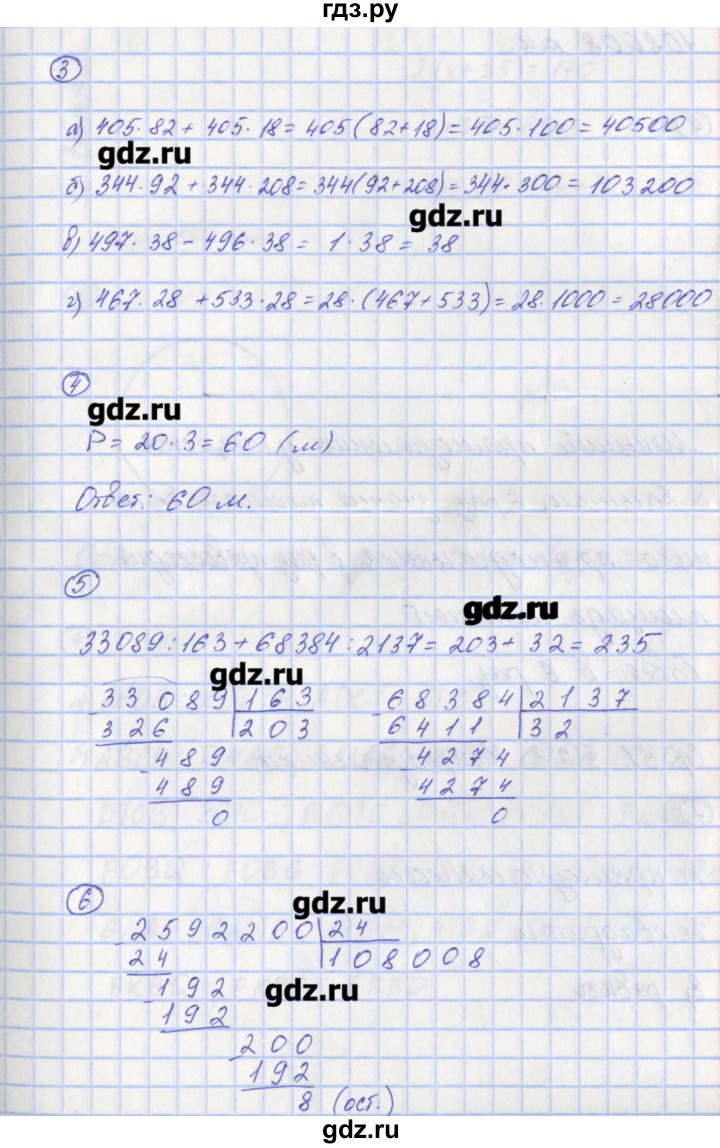 гдз.ру
3
а) 405·82 + 405·18 = 405(82+18) = 405·100 = 40500
gdz.ru
б) 344·92 + 344·208 = 344(92+208) = 344·300 = 103200
gdz.ru
в) 497·38 – 496·38 = 1·38 = 38
г) 467·28 + 533·28 = 28·(467+533) = 28·1000 = 28000
4
gdz.ru
P = 20·3 = 60 (м)
Ответ: 60 м.
5
gdz.ru
33089:163 + 68384:2137 = 203 + 32 = 235
gdz.ru
33089 163 68384 2137
326 203 6411 32
489 4274
489 4274
0 0
6
gdz.ru
2592200 24
24 108008
192
gdz.ru
192
200
192
8 (ост.)
gdz.ru